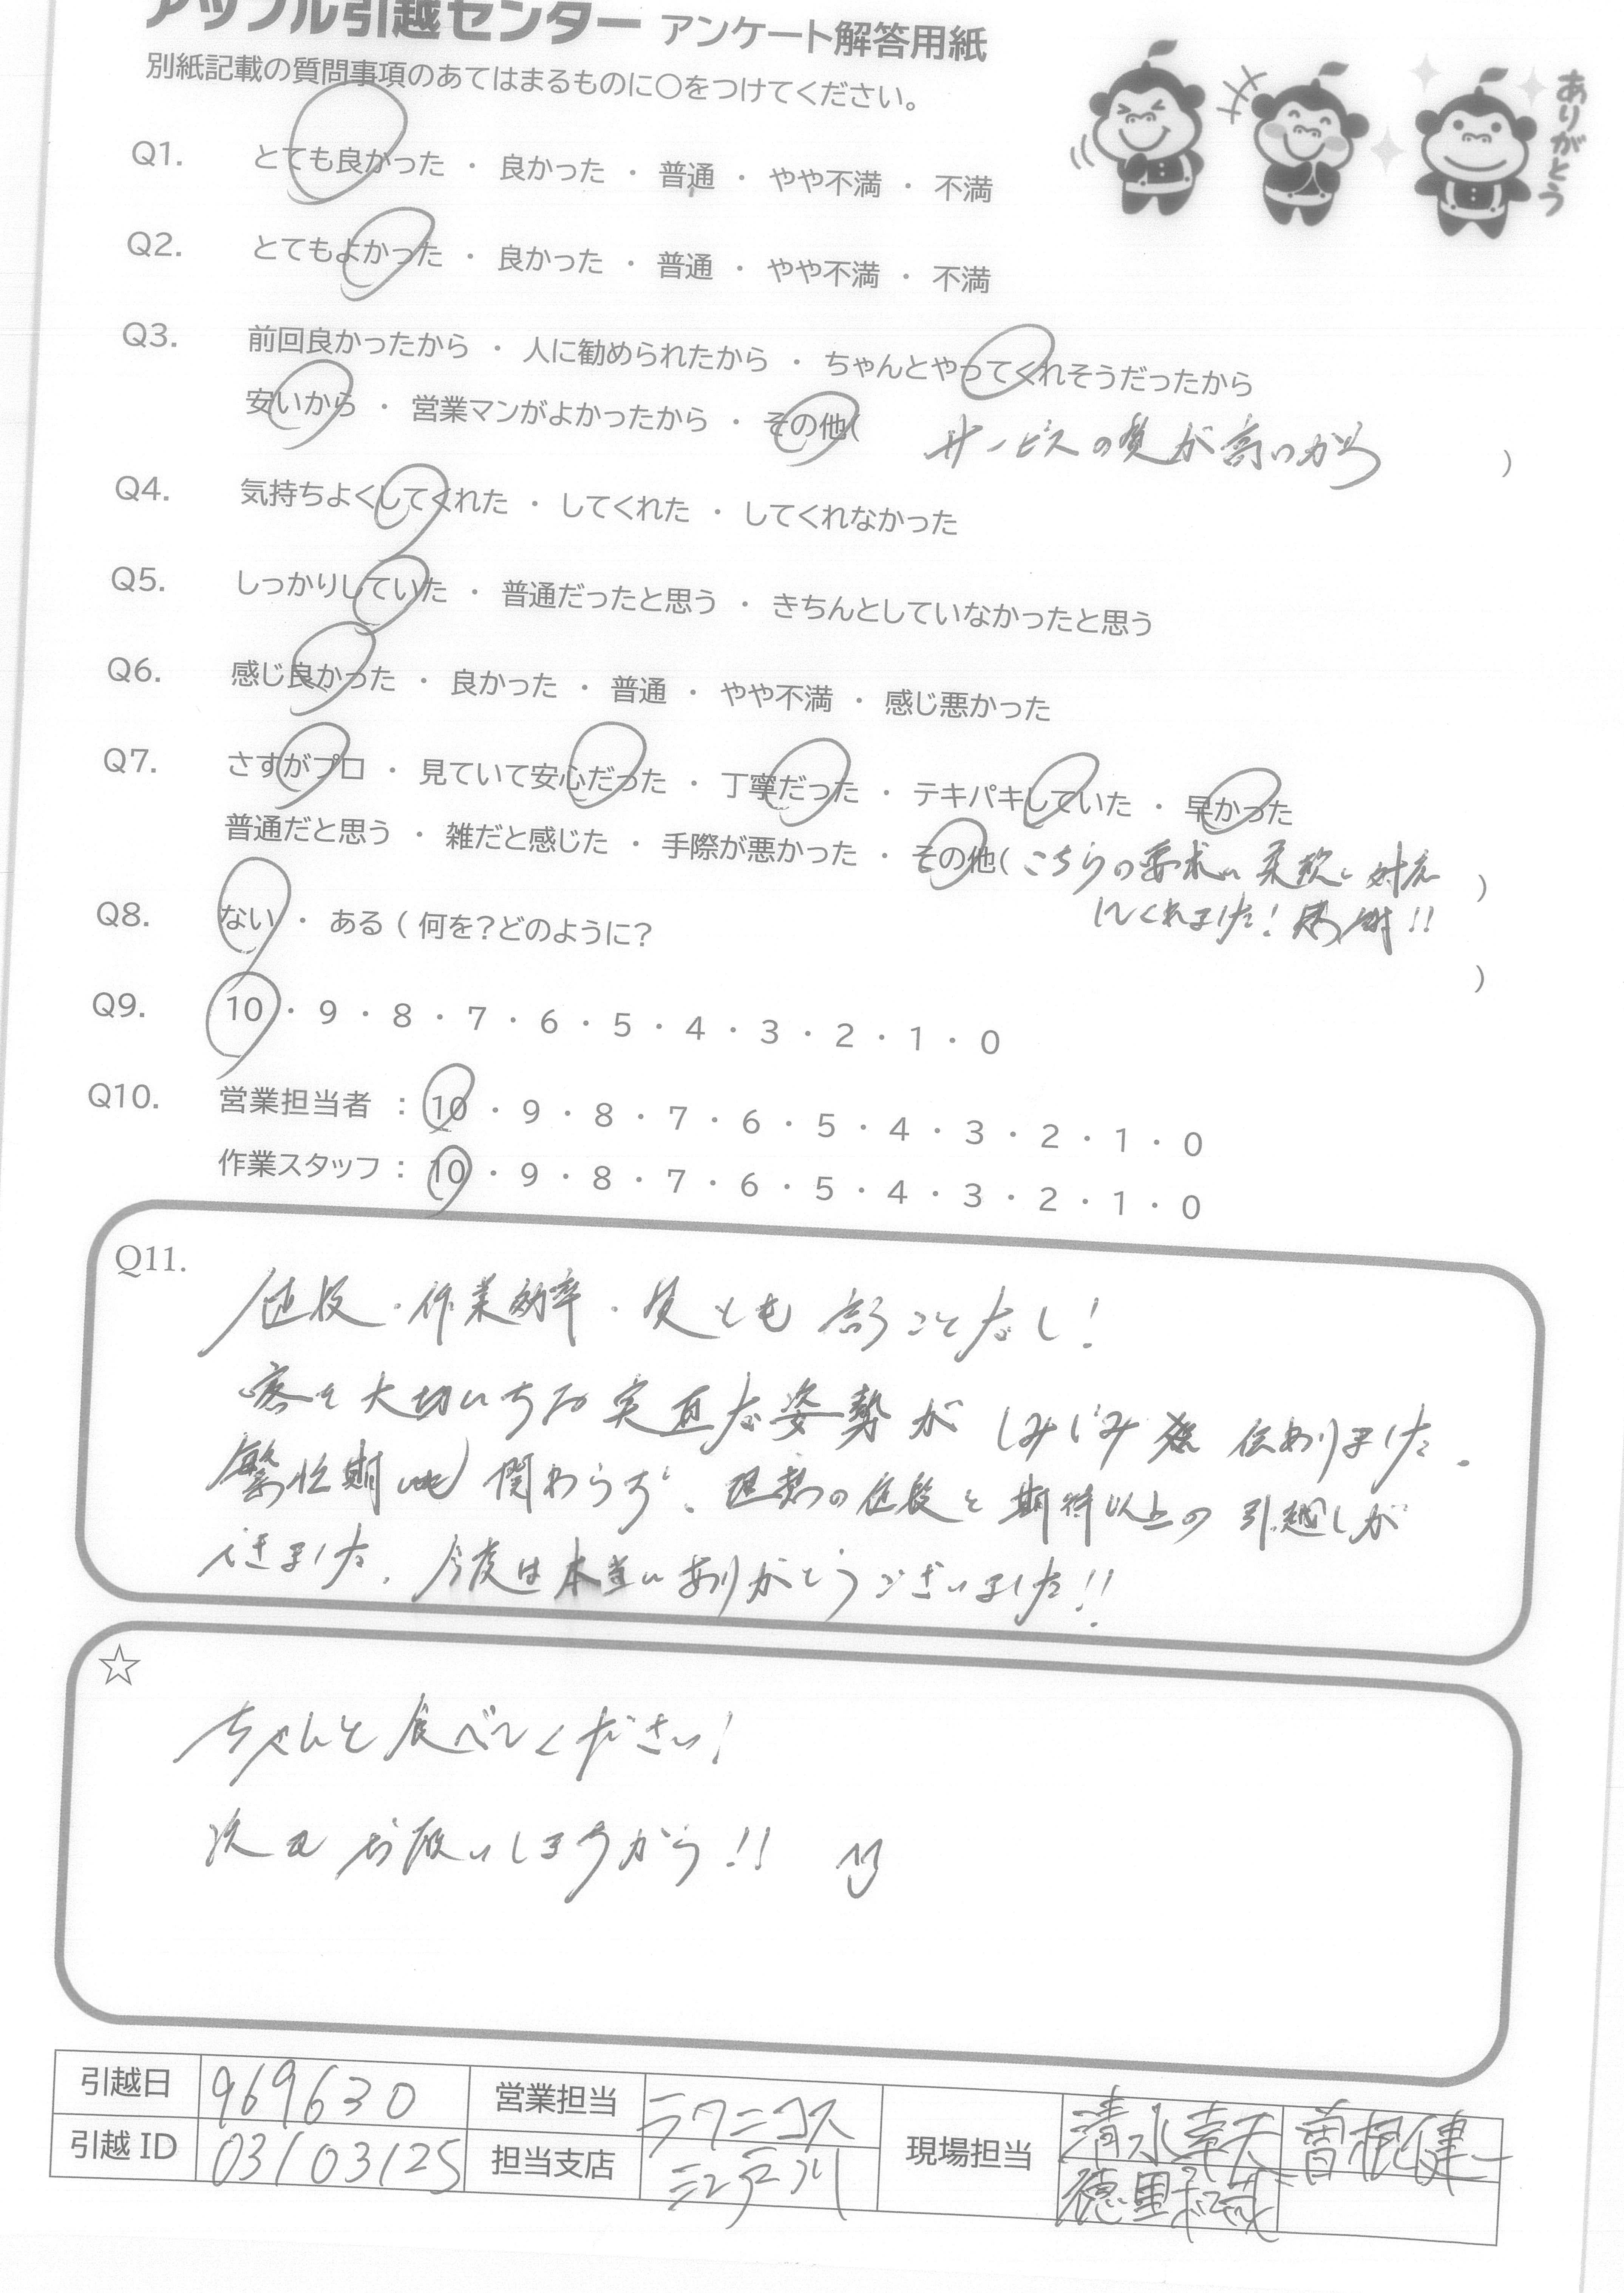 アップル引越センター アンケート解答用紙
別紙記載の質問事項のあてはまるものに○をつけてください。
ありがとう
Q1. とても良かった ・ 良かった ・ 普通 ・ やや不満 ・ 不満
Q2. とてもよかった ・ 良かった ・ 普通 ・ やや不満 ・ 不満
Q3. 前回良かったから ・ 人に勧められたから ・ ちゃんとやってくれそうだったから
安いから ・ 営業マンがよかったから ・ その他( サービスの質が高いから )
Q4. 気持ちよくしてくれた ・ してくれた ・ してくれなかった
Q5. しっかりしていた ・ 普通だったと思う ・ きちんとしていなかったと思う
Q6. 感じ良かった ・ 良かった ・ 普通 ・ やや不満 ・ 感じ悪かった
Q7. さすがプロ ・ 見ていて安心だった ・ 丁寧だった ・ テキパキしていた ・ 早かった
普通だと思う ・ 雑だと感じた ・ 手際が悪かった ・ その他( こちらの要求に柔軟に対応 )
してくれました! 感謝!!
Q8. ない ・ ある ( 何を?どのように? )
Q9. 10 ・ 9 ・ 8 ・ 7 ・ 6 ・ 5 ・ 4 ・ 3 ・ 2 ・ 1 ・ 0
Q10. 営業担当者 : 10 ・ 9 ・ 8 ・ 7 ・ 6 ・ 5 ・ 4 ・ 3 ・ 2 ・ 1 ・ 0
作業スタッフ : 10 ・ 9 ・ 8 ・ 7 ・ 6 ・ 5 ・ 4 ・ 3 ・ 2 ・ 1 ・ 0
Q11.
値段・作業効率・質とも言うことなし!
客を大切にする実直な姿勢がしみじみ伝わりました。
繁忙期にも関わらず、理想の値段と期待以上の引越しが
できました。今度は本当にありがとうございました!!
☆
ちゃんと食べてください!
次もお願いしますから!!
引越日 969630 営業担当 ラワニコス 現場担当 清水幸夫 曽根健一
引越 ID 03103125 担当支店